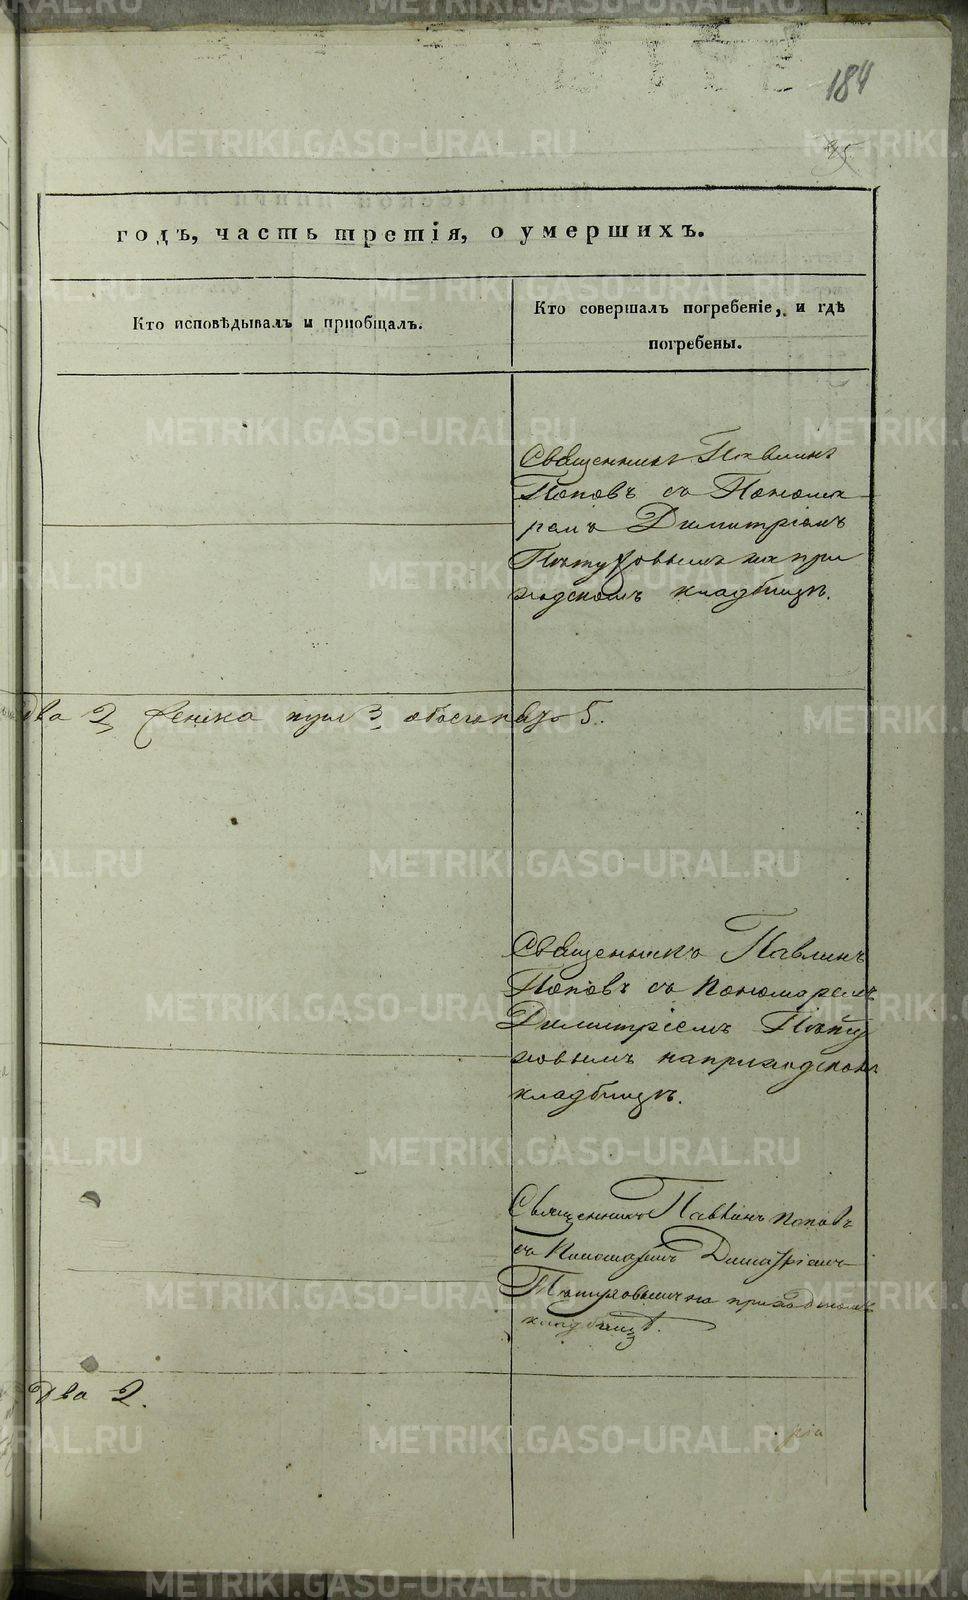 184
годъ, часть третія, о умершихъ.
Кто исповѣдывалъ и пріобщалъ.
Кто совершалъ погребеніе, и гдѣ
погребены.
Священникъ Павлинъ
Поповъ съ Понома-
ремъ Димитріемъ
Пѣтуховымъ на при
ходскомъ кладбищѣ.
два 2 женска пола 3, обоего пола 5.
Священникъ Павлинъ
Поповъ съ пономаремъ
Димитріемъ Пѣту
ховымъ на приходскомъ
кладбищѣ.
Священникъ Павлинъ Поповъ
съ Пономаремъ Димитріемъ
Пѣтуховымъ на приходскомъ
кладбищѣ.
Два 2.
METRIKI.GASO-URAL.RU